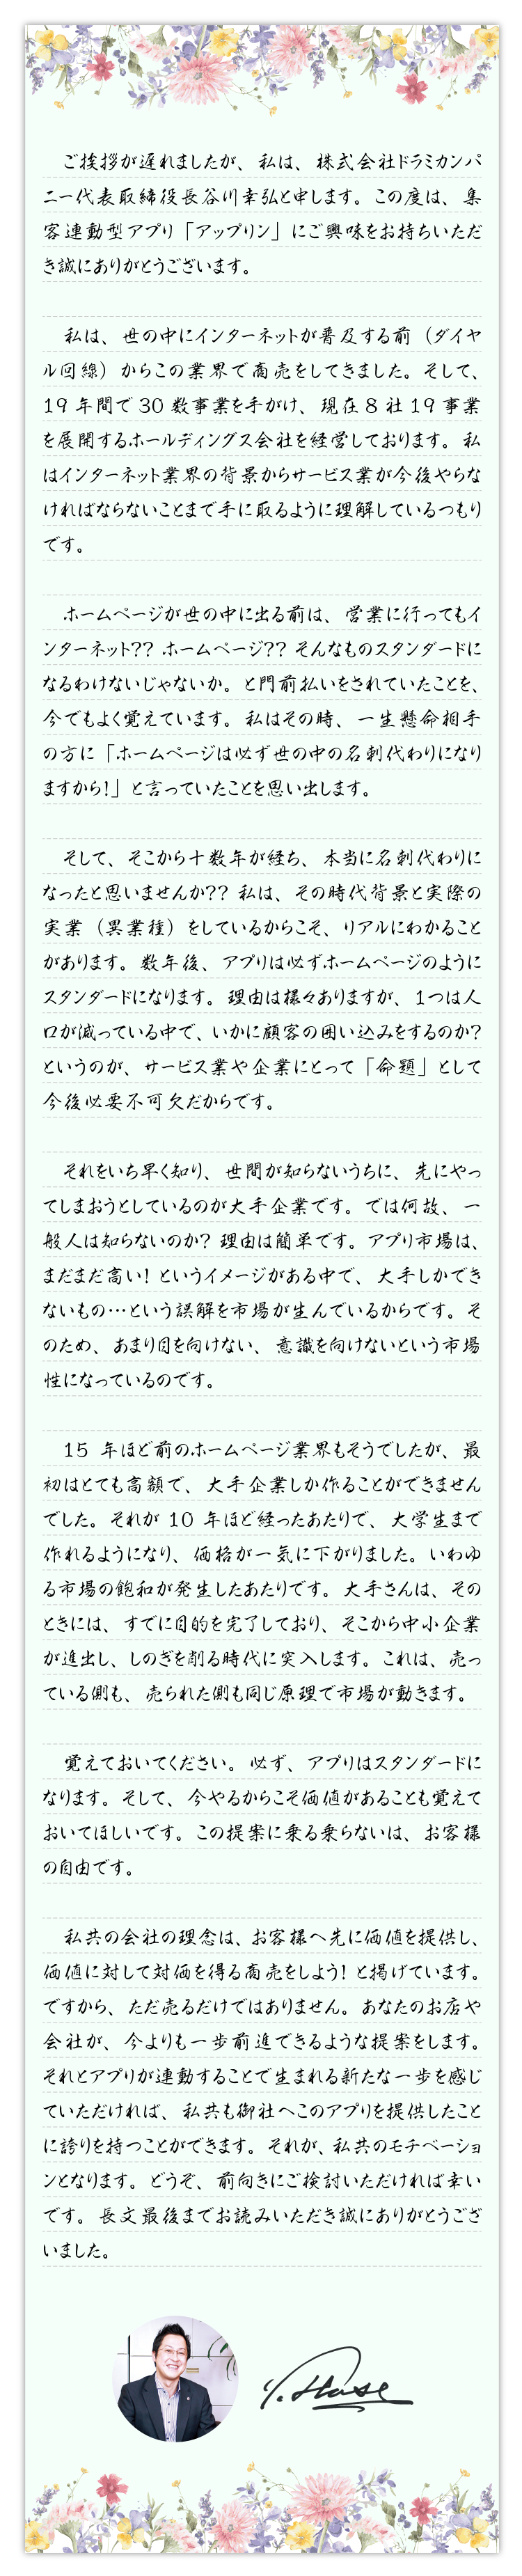 ご挨拶が遅れましたが、私は、株式会社ドラミカンパ
ニー代表取締役長谷川幸弘と申します。この度は、集
客連動型アプリ「アップリン」にご興味をお持ちいただ
き誠にありがとうございます。
私は、世の中にインターネットが普及する前（ダイヤ
ル回線）からこの業界で商売をしてきました。そして、
19年間で30数事業を手がけ、現在8社19事業
を展開するホールディングス会社を経営しております。私
はインターネット業界の背景からサービス業が今後やらな
ければならないことまで手に取るように理解しているつもり
です。
ホームページが世の中に出る前は、営業に行ってもイ
ンターネット??ホームページ??そんなものスタンダードに
なるわけないじゃないか。と門前払いをされていたことを、
今でもよく覚えています。私はその時、一生懸命相手
の方に「ホームページは必ず世の中の名刺代わりになり
ますから!」と言っていたことを思い出します。
そして、そこから十数年が経ち、本当に名刺代わりに
なったと思いませんか??私は、その時代背景と実際の
実業（異業種）をしているからこそ、リアルにわかること
があります。数年後、アプリは必ずホームページのように
スタンダードになります。理由は様々ありますが、1つは人
口が減っている中で、いかに顧客の囲い込みをするのか?
というのが、サービス業や企業にとって「命題」として
今後必要不可欠だからです。
それをいち早く知り、世間が知らないうちに、先にやっ
てしまおうとしているのが大手企業です。では何故、一
般人は知らないのか?理由は簡単です。アプリ市場は、
まだまだ高い!というイメージがある中で、大手しかでき
ないもの…という誤解を市場が生んでいるからです。そ
のため、あまり目を向けない、意識を向けないという市場
性になっているのです。
15年ほど前のホームページ業界もそうでしたが、最
初はとても高額で、大手企業しか作ることができません
でした。それが10年ほど経ったあたりで、大学生まで
作れるようになり、価格が一気に下がりました。いわゆ
る市場の飽和が発生したあたりです。大手さんは、その
ときには、すでに目的を完了しており、そこから中小企業
が進出し、しのぎを削る時代に突入します。これは、売っ
ている側も、売られた側も同じ原理で市場が動きます。
覚えておいてください。必ず、アプリはスタンダードに
なります。そして、今やるからこそ価値があることも覚えて
おいてほしいです。この提案に乗る乗らないは、お客様
の自由です。
私共の会社の理念は、お客様へ先に価値を提供し、
価値に対して対価を得る商売をしよう!と掲げています。
ですから、ただ売るだけではありません。あなたのお店や
会社が、今よりも一歩前進できるような提案をします。
それとアプリが連動することで生まれる新たな一歩を感じ
ていただければ、私共も御社へこのアプリを提供したこと
に誇りを持つことができます。それが、私共のモチベーショ
ンとなります。どうぞ、前向きにご検討いただければ幸い
です。長文最後までお読みいただき誠にありがとうござ
いました。